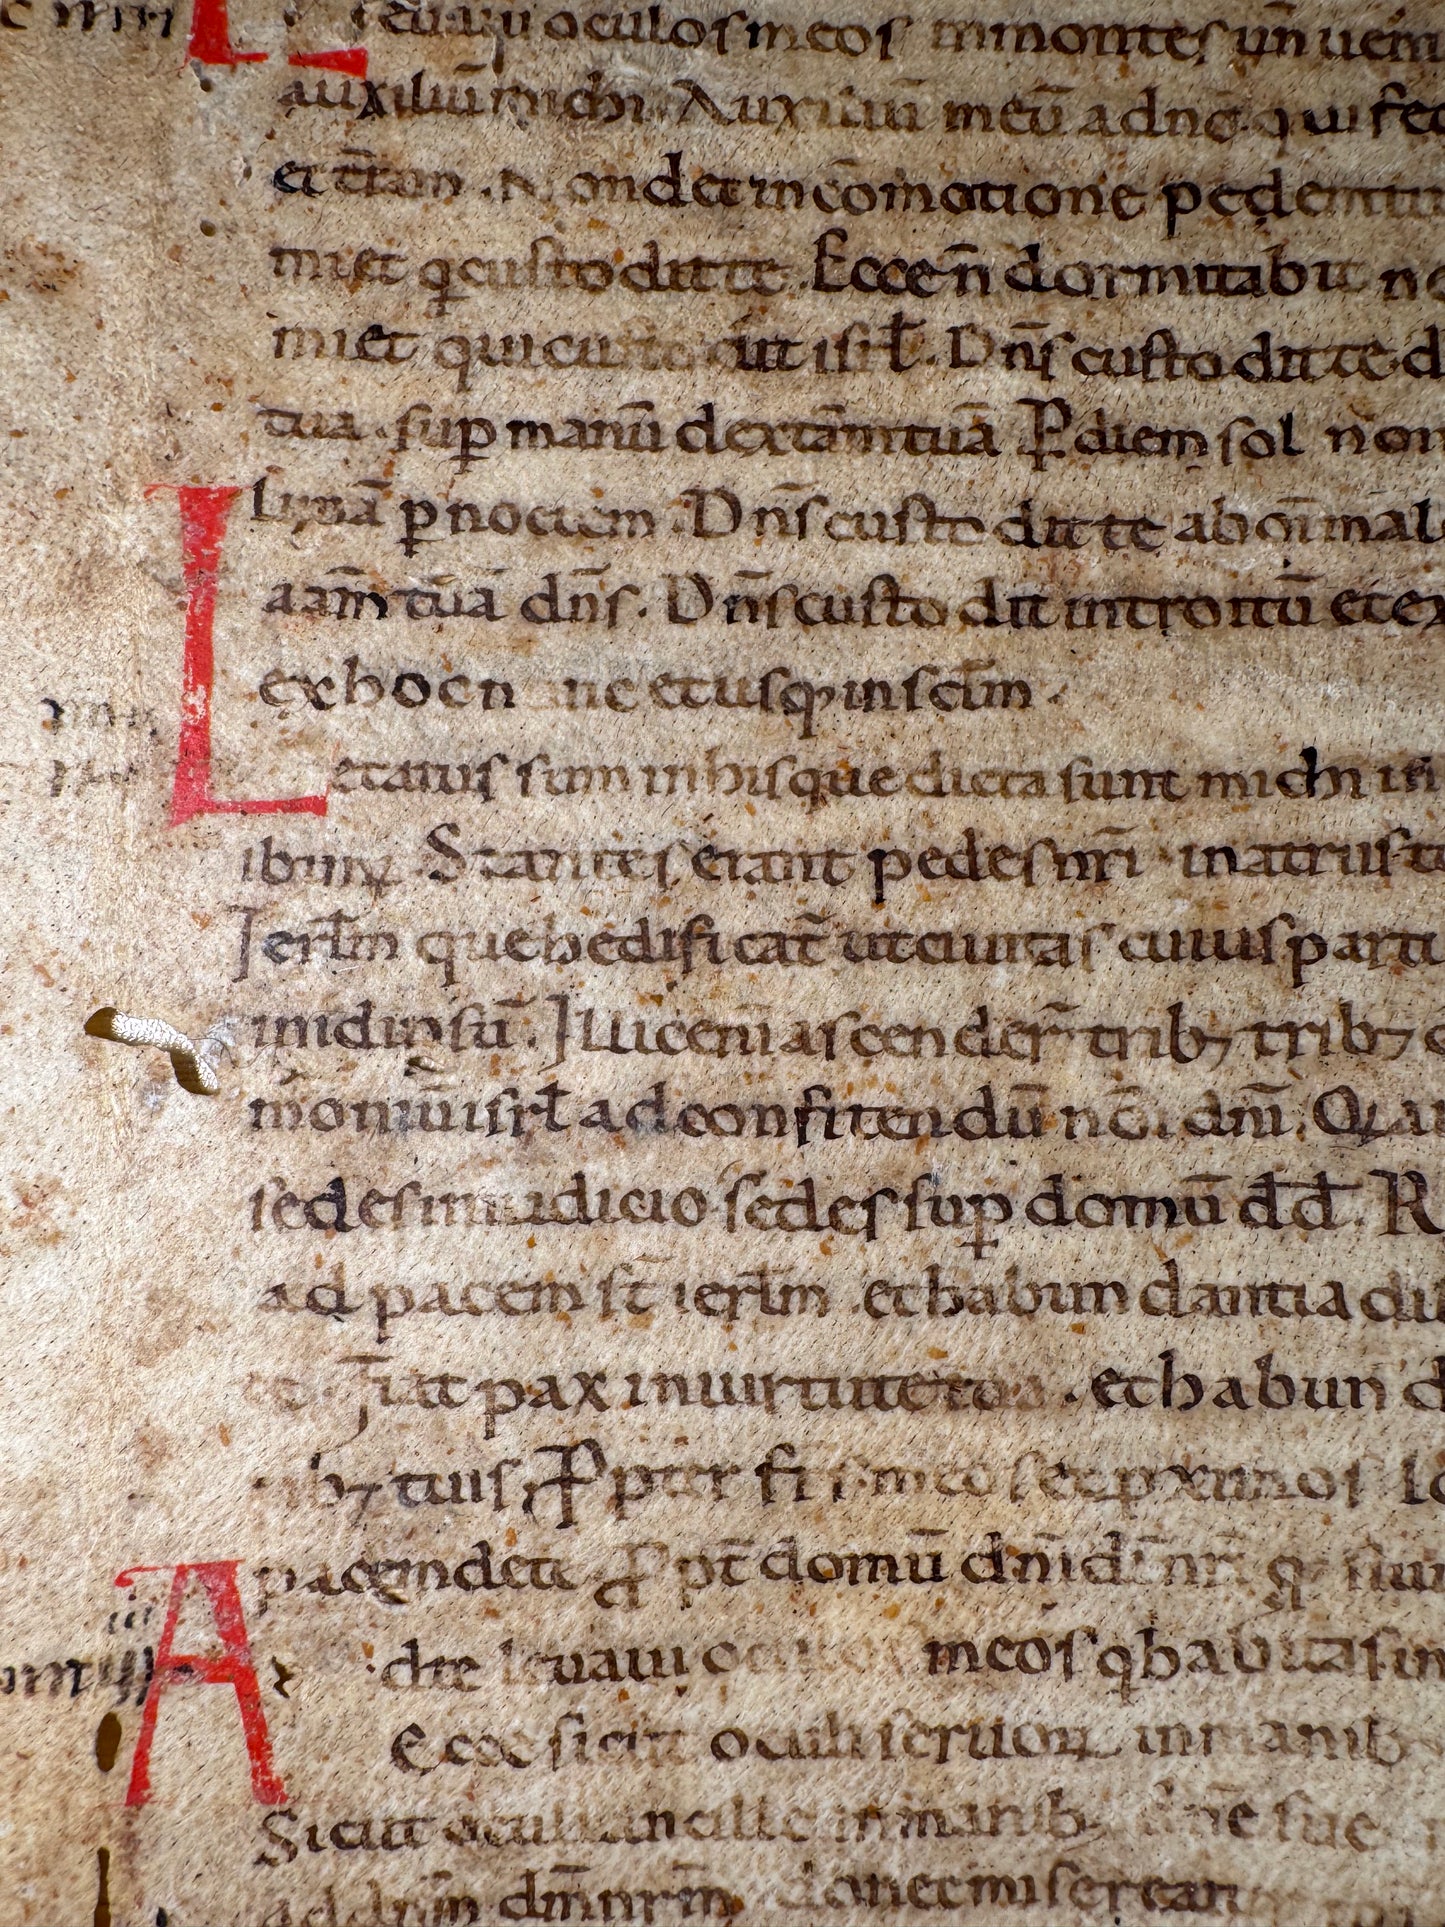 Leuaui oculos meos inmontes un̄ uen
auxiliū michi. Auxiliū meū adn̄o. qui fec
et t̄ram. Non det incōmotione pedemtu
miet qͥcustodit te. Ecce n̄ dormitabit ne
miet qui custodit isrł. Dn̄s custodit te. d
tua. suꝑ manū dext̄am tuā Ꝑ diem sol non
lunā ꝑ noctem. Dn̄s custodit te ab om̄i mal
aam̄ tuā dn̄s. Dn̄s custodit introitū et ex
ex hoc nunc et usqꝫ in sclm̄.
Letatus sum in his que dicta sunt michi in
ibimꝰ. Stantes erant pedes nr̄i in atriis t
Jerłm que hedificat̄ ut ciuitas cuius parti
in id ipsū. Illuc eni ascender̄ tribꝫ tribꝫ
moniū isrł ad confitendū nōi dn̄i. Quia
sedes in iudicio sedes suꝑ domū dd̄. R
ad pacem st̄ ierłm et habundantia dil
te. Fiat pax in uirtute tua. et habund
ibꝫ tuis. Ꝓpter fr̄s meos et ꝓximos lo
pacem de te. Ꝓpt̄ domū dn̄i di nr̄i q̄siui
Ad te leuaui oculos meos qͥ habitas in
Ecce sicut oculi seruoꝝ in manibꝫ
Sicut oculi ancille in manibꝫ dn̄e sue
ad dn̄m dm̄ nr̄m donec misereat